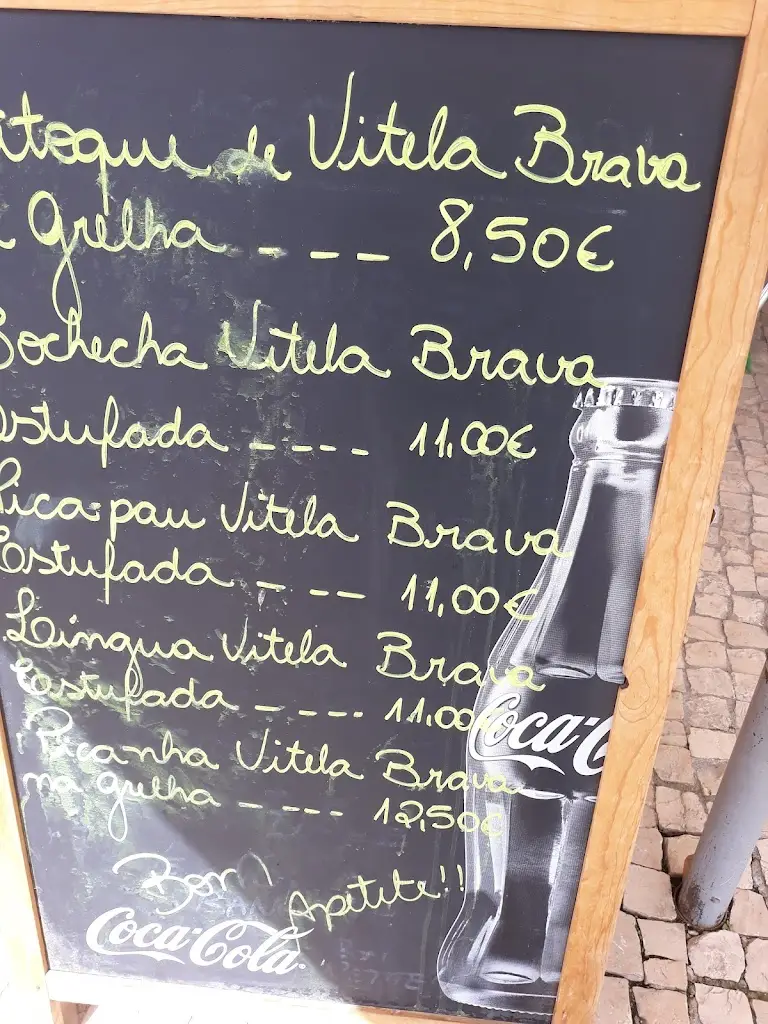 atoque de Vitela Brava
Grelha _ _ _ _ 8,50€
Bochecha Vitela Brava
Estufada _ _ _ _ 11,00€
Pica-pau Vitela Brava
Estufada _ _ _ _ 11,00€
Língua Vitela Brava
Estufada _ _ _ _ 11,00€
Picanha Vitela Brava
na grelha _ _ _ _ 12,50€
Bom
Apetite!!
Coca-Cola
Coca-C